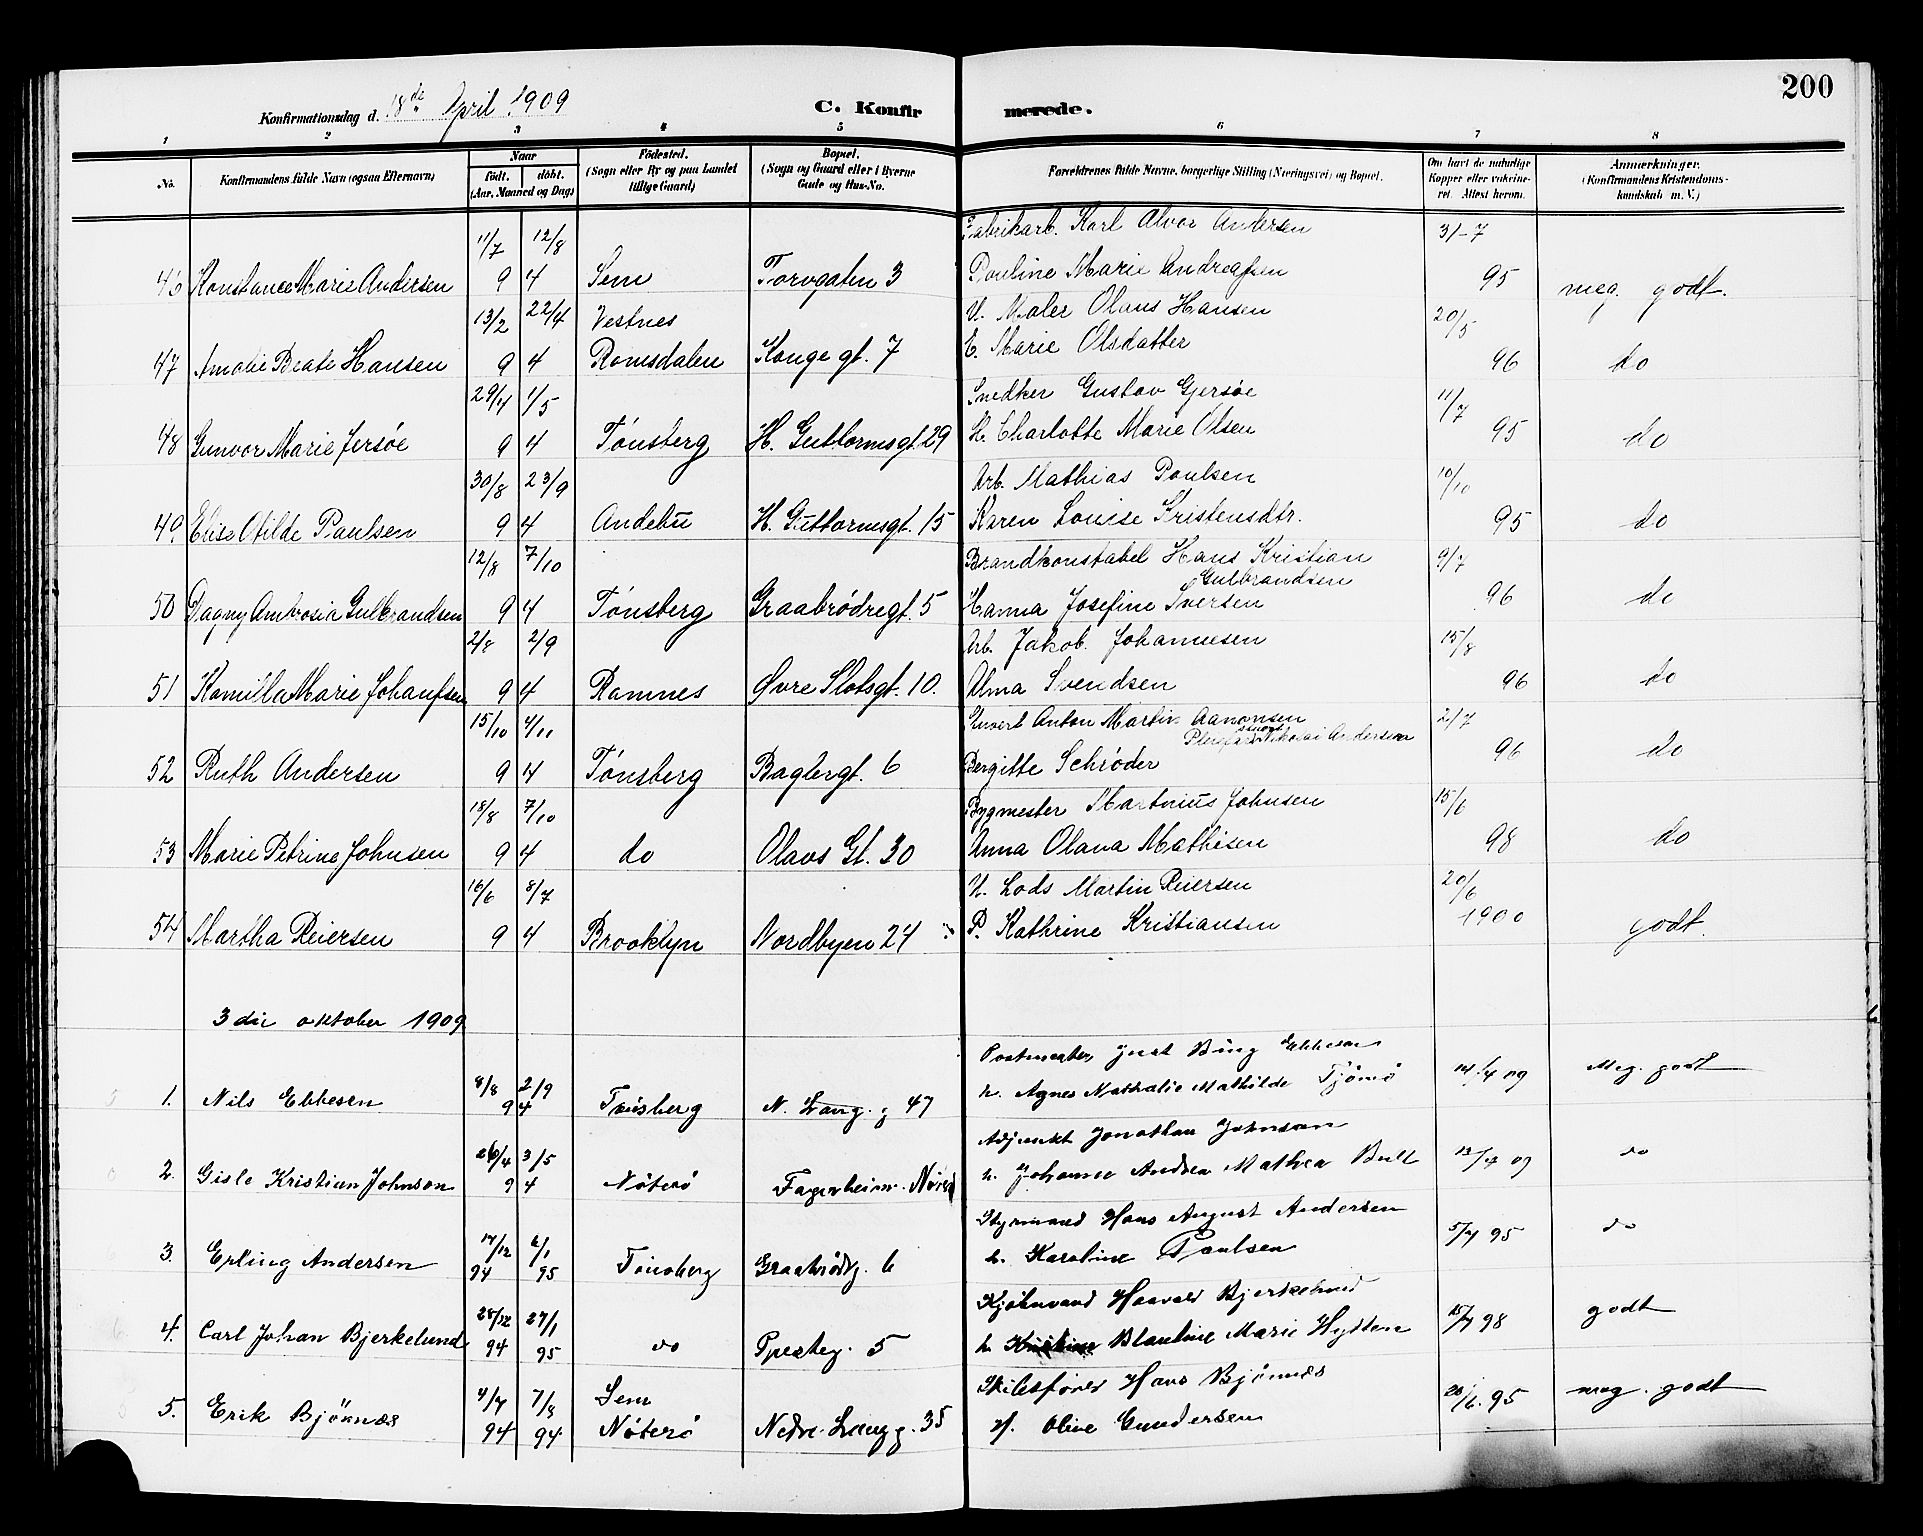 200
Konfirmationsdag d. 18de April 1909 C. Konfirmerede.
1 2 3 4 5 6 7 8
No. Konfirmandens fulde Navn (ogsaa Efternavn) Naar født. døbt. (Aar, Maaned og Dag) Fødested. (Sogn eller By og paa Landet tillige Gaard) Bopæl. (Sogn og Gaard eller i Byerne Gade og Hus-No. Forældrenes fulde Navne, borgerlige Stilling (Næringsvei) og Bopæl. Om havt de naturlige Kopper eller vakcineret. Attest herom. Anmerkninger. (Konfirmandens Kristendomskundskab m. V.)
11/7 12/8 Fabrikarb. Karl Alvor Andersen 31-7
46 Konstance Marie Andersen 9 4 Sem Torvgaten 3 Pouline Marie Andreassen 95 meg. godt.
13/2 22/4 Vestnes U. Maler Olaus Hansen 20/5
47 Amalie Beate Hansen 9 4 Romsdalen Konge gt. 7 E. Marie Olsdatter 96 do
29/4 1/5 Snedker Gustav Gjersøe 11/7
48 Gunvor Marie Jersøe 9 4 Tønsberg H. Guttormsgt. 29 H. Charlotte Marie Olsen 95 do
30/8 23/9 Arb. Mathias Paulsen 10/10
49 Elise Otilde Paulsen 9 4 Andebu H. Guttormsgt. 15 Karen Louise Kristensdtr. 95 do
12/8 7/10 Brandkonstabel Hans Kristian Gulbrandsen 9/7
50 Dagny Ambrosia Gulbrandsen 9 4 Tønsberg Graabrødregt. 5 Hanna Josefine Iversen 96 do
2/8 2/9 Arb. Jakob Johannesen 15/8
51 Kamilla Marie Johansen 9 4 Ramnes Øvre Slotsgt. 10. Alma Svendsen 96 do
15/10 4/11 Anton Martin Aanonsen 2/7
Nikolai Andersen
52 Ruth Andersen 9 4 Tønsberg Baglergt. 6 Bergitte Schrøder 96 do
18/8 7/10 Bygmester Martinius Johnsen 15/6
53 Marie Petrine Johnsen 9 4 do Olavs Gt. 30 Anna Olava Mathisen 98 do
16/6 8/7 U. Lods Martin Reiersen 20/6
54 Martha Reiersen 9 4 Brooklyn Nordbyen 24 P. Kathrine Kristiansen 1900 godt.
3die oktober 1909
Postmester Just Bing Ebbesen
1. Nils Ebbesen 8/8 2/9 94 Tønsberg N. Lang. g 47 h. Agnes Nathalie Mathilde Tjömö 14/4 09 Meg. godt
Adjunkt Jonathan Johnson
2. Gisle Kristian Johnson 26/4 3/5 9 4 Nöterö Fagerheim. h. Johanne Andrea Mathea Bull 13/4 09 do
Styrmand Hans August Andersen
3. Erling Andersen 17/12 94 6/1 95 Tönsberg Graabrödrg. 6 h. Karoline Paulsen 5/7 95 do
Kjöbmand Haavald Bjerkelund
4. Carl Johan Bjerkelund 28/12 94 27/1 95 do 5 h. Blantine Marie Hytten 15/7 98 godt
Skibsförer Hans Bjönnes
5. Erik Bjönnes 4/7 94 7/8 94 Sem Nöterö Nedre Langg. 35 H. Oline Gundersen 20/6. 95 meg. godt